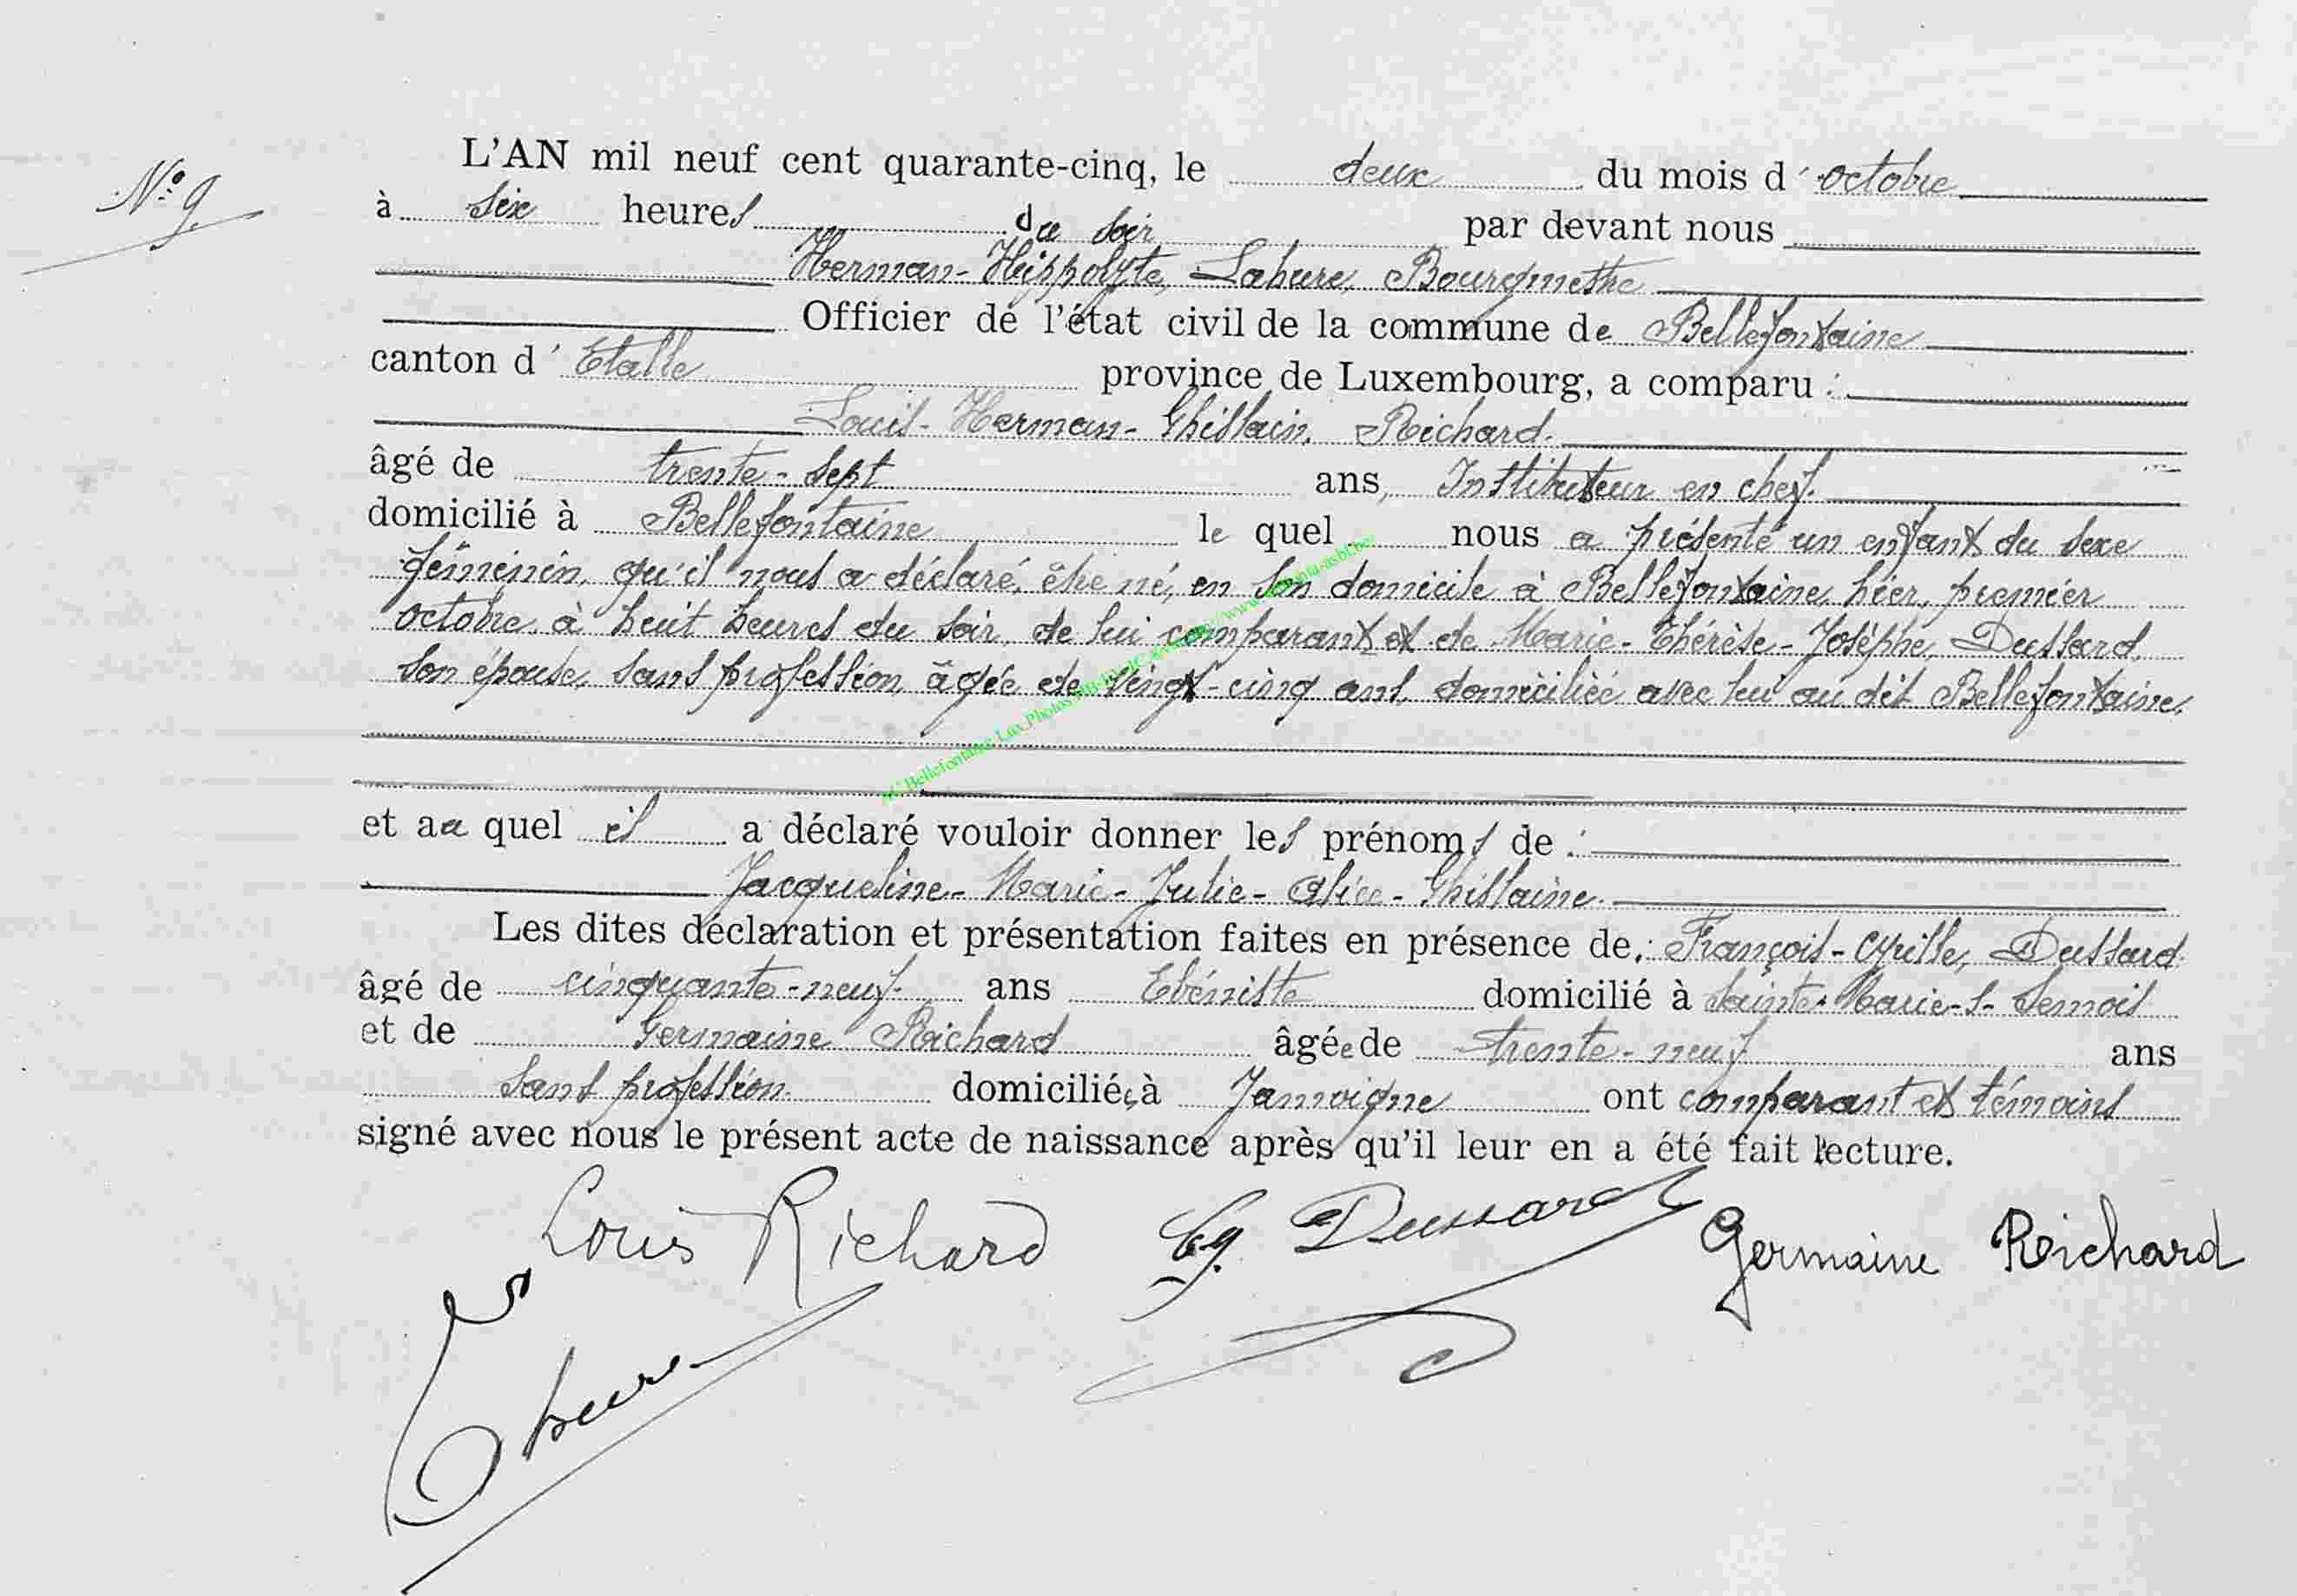 N° 9
L'AN mil neuf cent quarante-cinq, le deux du mois d'octobre
à six heures du soir par devant nous
Herman-Hippolyte, Lahure, Bourgmestre
Officier de l'état civil de la commune de Bellefontaine
canton d'Etalle province de Luxembourg, a comparu :
Louis-Herman-Ghislain, Richard.
âgé de trente-sept ans, Instituteur en chef.
domicilié à Bellefontaine le quel nous a présenté un enfant du sexe
féminin, qu'il nous a déclaré, être né, en son domicile à Bellefontaine, hier, premier
octobre, à huit heures du soir, de lui comparant et de Marie-Thérèse-Josèphe, Dussard,
son épouse, sans profession, âgée de vingt-cinq ans, domiciliée avec lui au dit Bellefontaine.
et au quel il a déclaré vouloir donner les prénoms de :
Jacqueline-Marie-Julie-Alice-Ghislaine.
Les dites déclaration et présentation faites en présence de : François-Cyrille, Dussard
âgé de cinquante-neuf ans Ebéniste domicilié à Sainte-Marie-s-Semois
et de Germaine Richard âgée de trente-neuf ans
sans profession. domiciliée à Jamoigne ont comparant et témoins
signé avec nous le présent acte de naissance après qu'il leur en a été fait lecture.
Louis Richard Cy. Dussard Germaine Richard